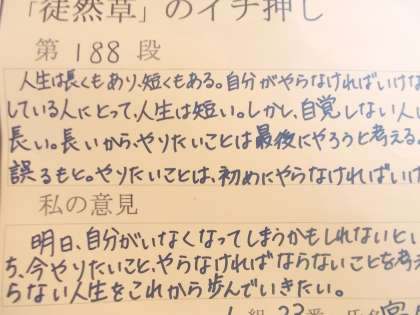 「徒然草」のイチ押し
第188段
人生は長くもあり、短くもある。自分がやらなければいけな
している人にとって、人生は短い。しかし、自覚しない人に
長い。長いから、やりたいことは最後にやろうと考える。
誤るもと。やりたいことは、初めにやらなければいけ
私の意見
明日、自分がいなくなってしまうかもしれないとい
ち、今やりたいこと、やらなければならないことを考え
らない人生をこれから歩んでいきたい。
組 23番 氏名